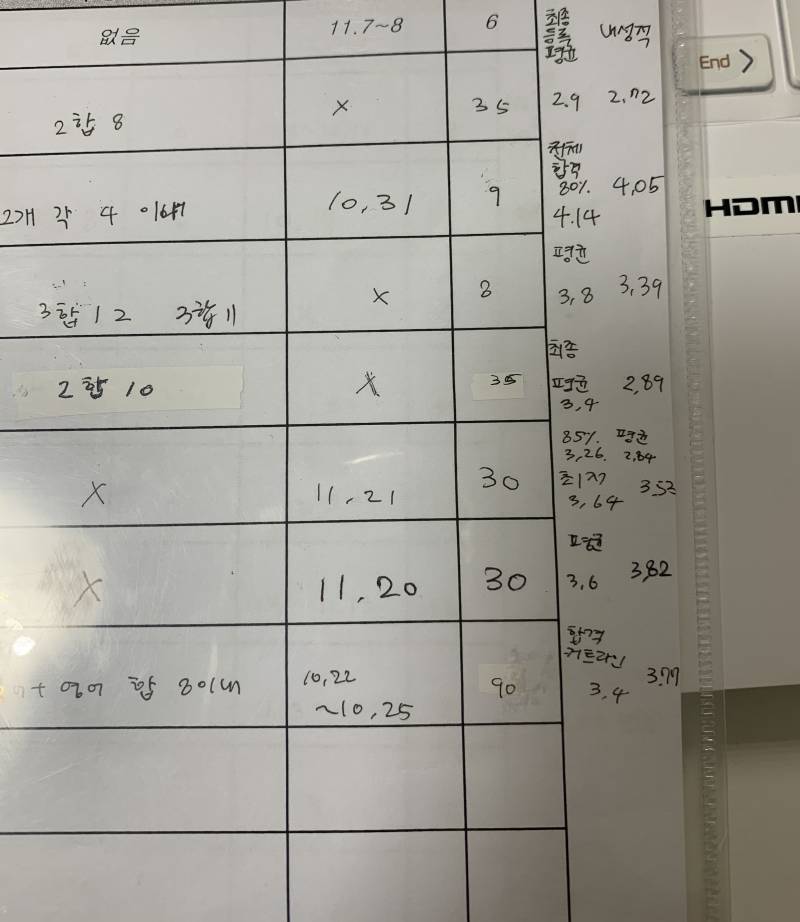 없음 11.7~8 6 최종 등록 평균 내성적
2합 8 X 35 2.9 2.72
2개 각 4 이내 10,31 9 전체 합격 80% 4.14 4,05
3합 12 3합 11 X 8 평균 3,8 3,39
2합 10 X 35 최종 평균 3,4 2,89
X 11,21 30 85% 3,26. 평균 2,84
최저 3,64 3.53
X 11,20 30 평균 3,6 3,82
+ 영어 합 8이내 10,22 ~10,25 90 합격 커트라인 3,4 3.77
End >
HDMI